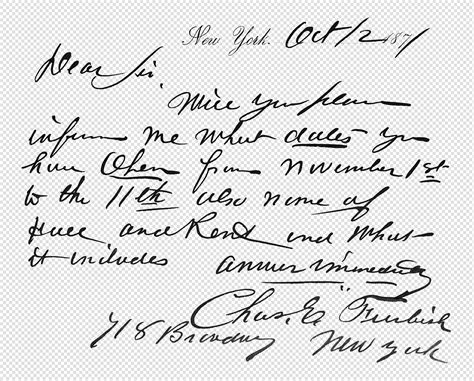 New York. Oct 12 1871
Dear Sir.
Will you please
inform me what dates you
have Open from November 1st
to the 11th also name of
Hall and Rent and what
it includes answer immediately
Chas. E. Furbish
718 Broadway New York